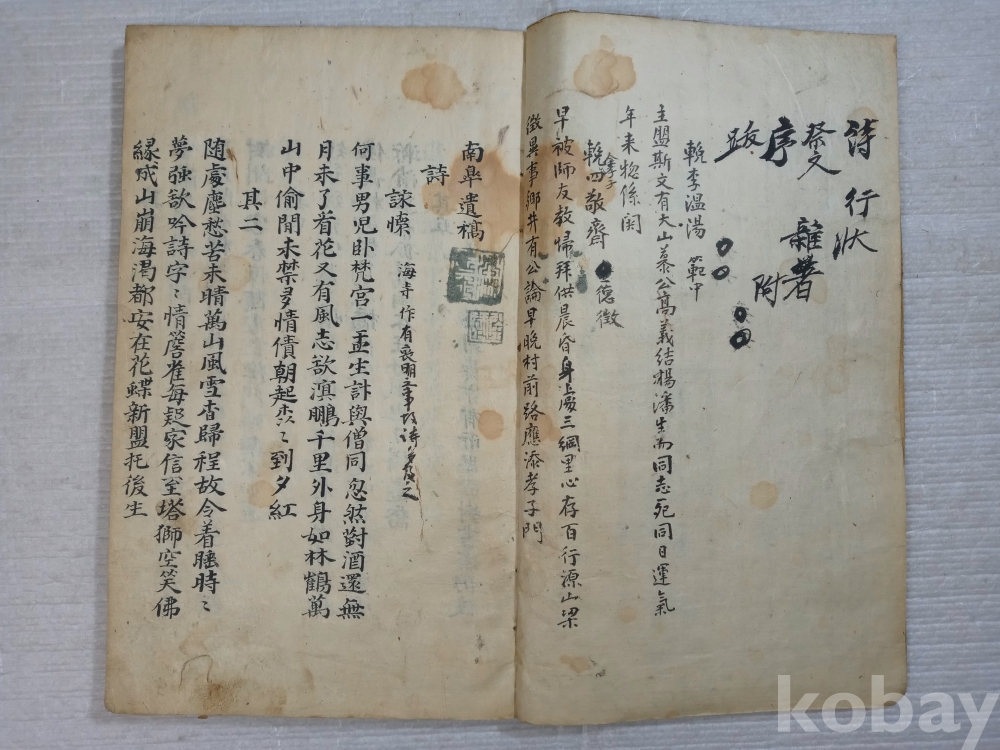 詩 行狀
祭文 雜著
序 附
跋
輓李溫陽 範中
主盟斯文有大山慕公高義結楊潘生而同志死同日運氣
年来惣係関
輓四敬齋 德徵
孝子
早被師友教帰拜供晨昏身上處三綱里心存百行源山梁
徵異事鄉井有公論早晚村前路應添孝子門
南皐遺稿
詩
詠懷 海寺作有喪明
何事男児卧梵宮一盂生計與僧同忽然對酒還無
月未了看花又有風志欲溟鵬千里外身如林鶴萬
山中偷閒未禁多情債朝起杳〻到夕紅
其二
随處塵愁苦未晴萬山風雪杳歸程故令着睡時〻
夢強欲吟詩字〻情簷雀每起家信至塔獅空笑佛
緣成山崩海渴都安在花蝶新盟托後生
kobay